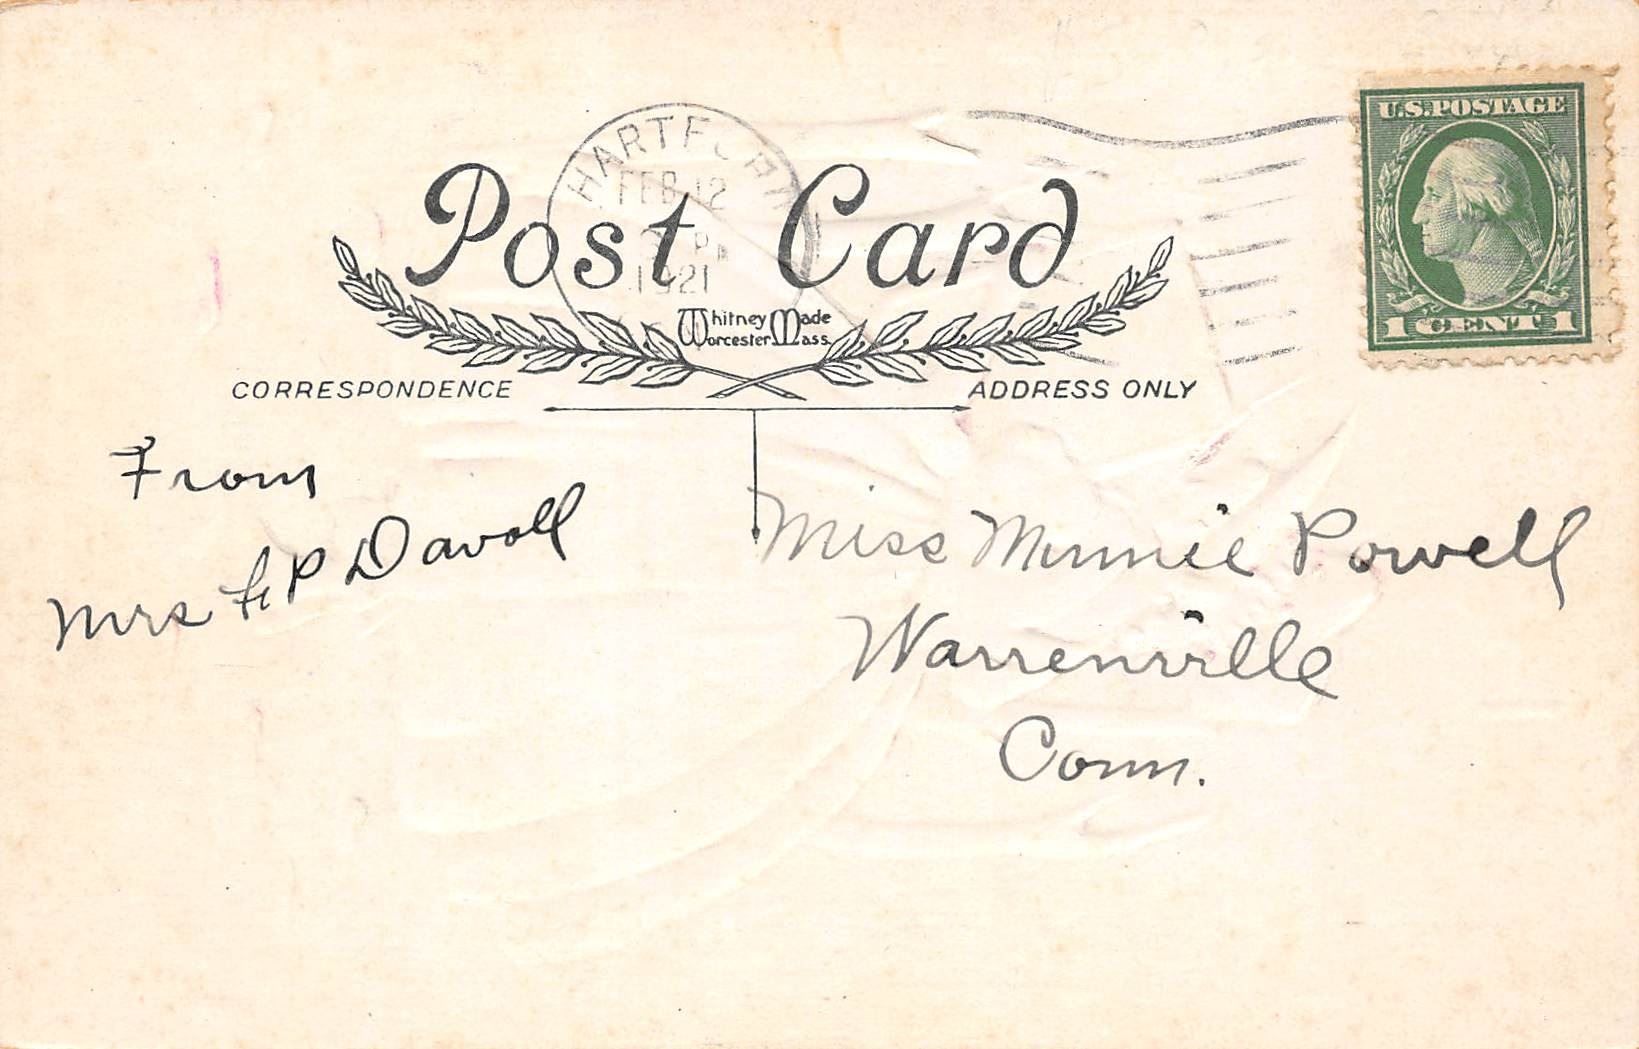 HARTFORD
FEB 12
PM
1921
U.S. POSTAGE
1 CENT 1
Post Card
Whitney Made
Worcester, Mass.
CORRESPONDENCE
ADDRESS ONLY
From
Mrs P Davoll
Miss Minnie Powell
Warrenville
Conn.